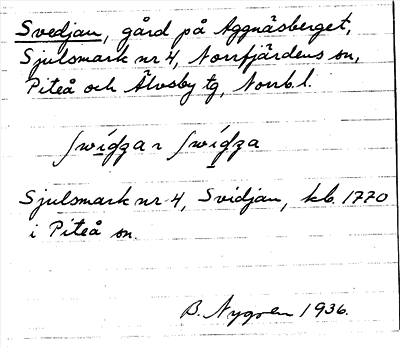 Svedjan, gård på Aggnäsberget,
Sjulsmark nr 4, Norrfjärdens sn,
Piteå och Älvsby tg, Norrb. l.
Sjulsmark nr 4, Svidjan, kb. 1770
i Piteå sn.
B. Nygren 1936.